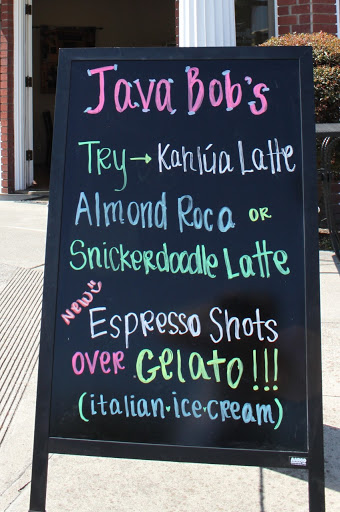 Java Bob's
Try → Kahlúa Latte
Almond Roca or
Snickerdoodle Latte
New
Espresso Shots
over Gelato!!!
(italian·ice·cream)